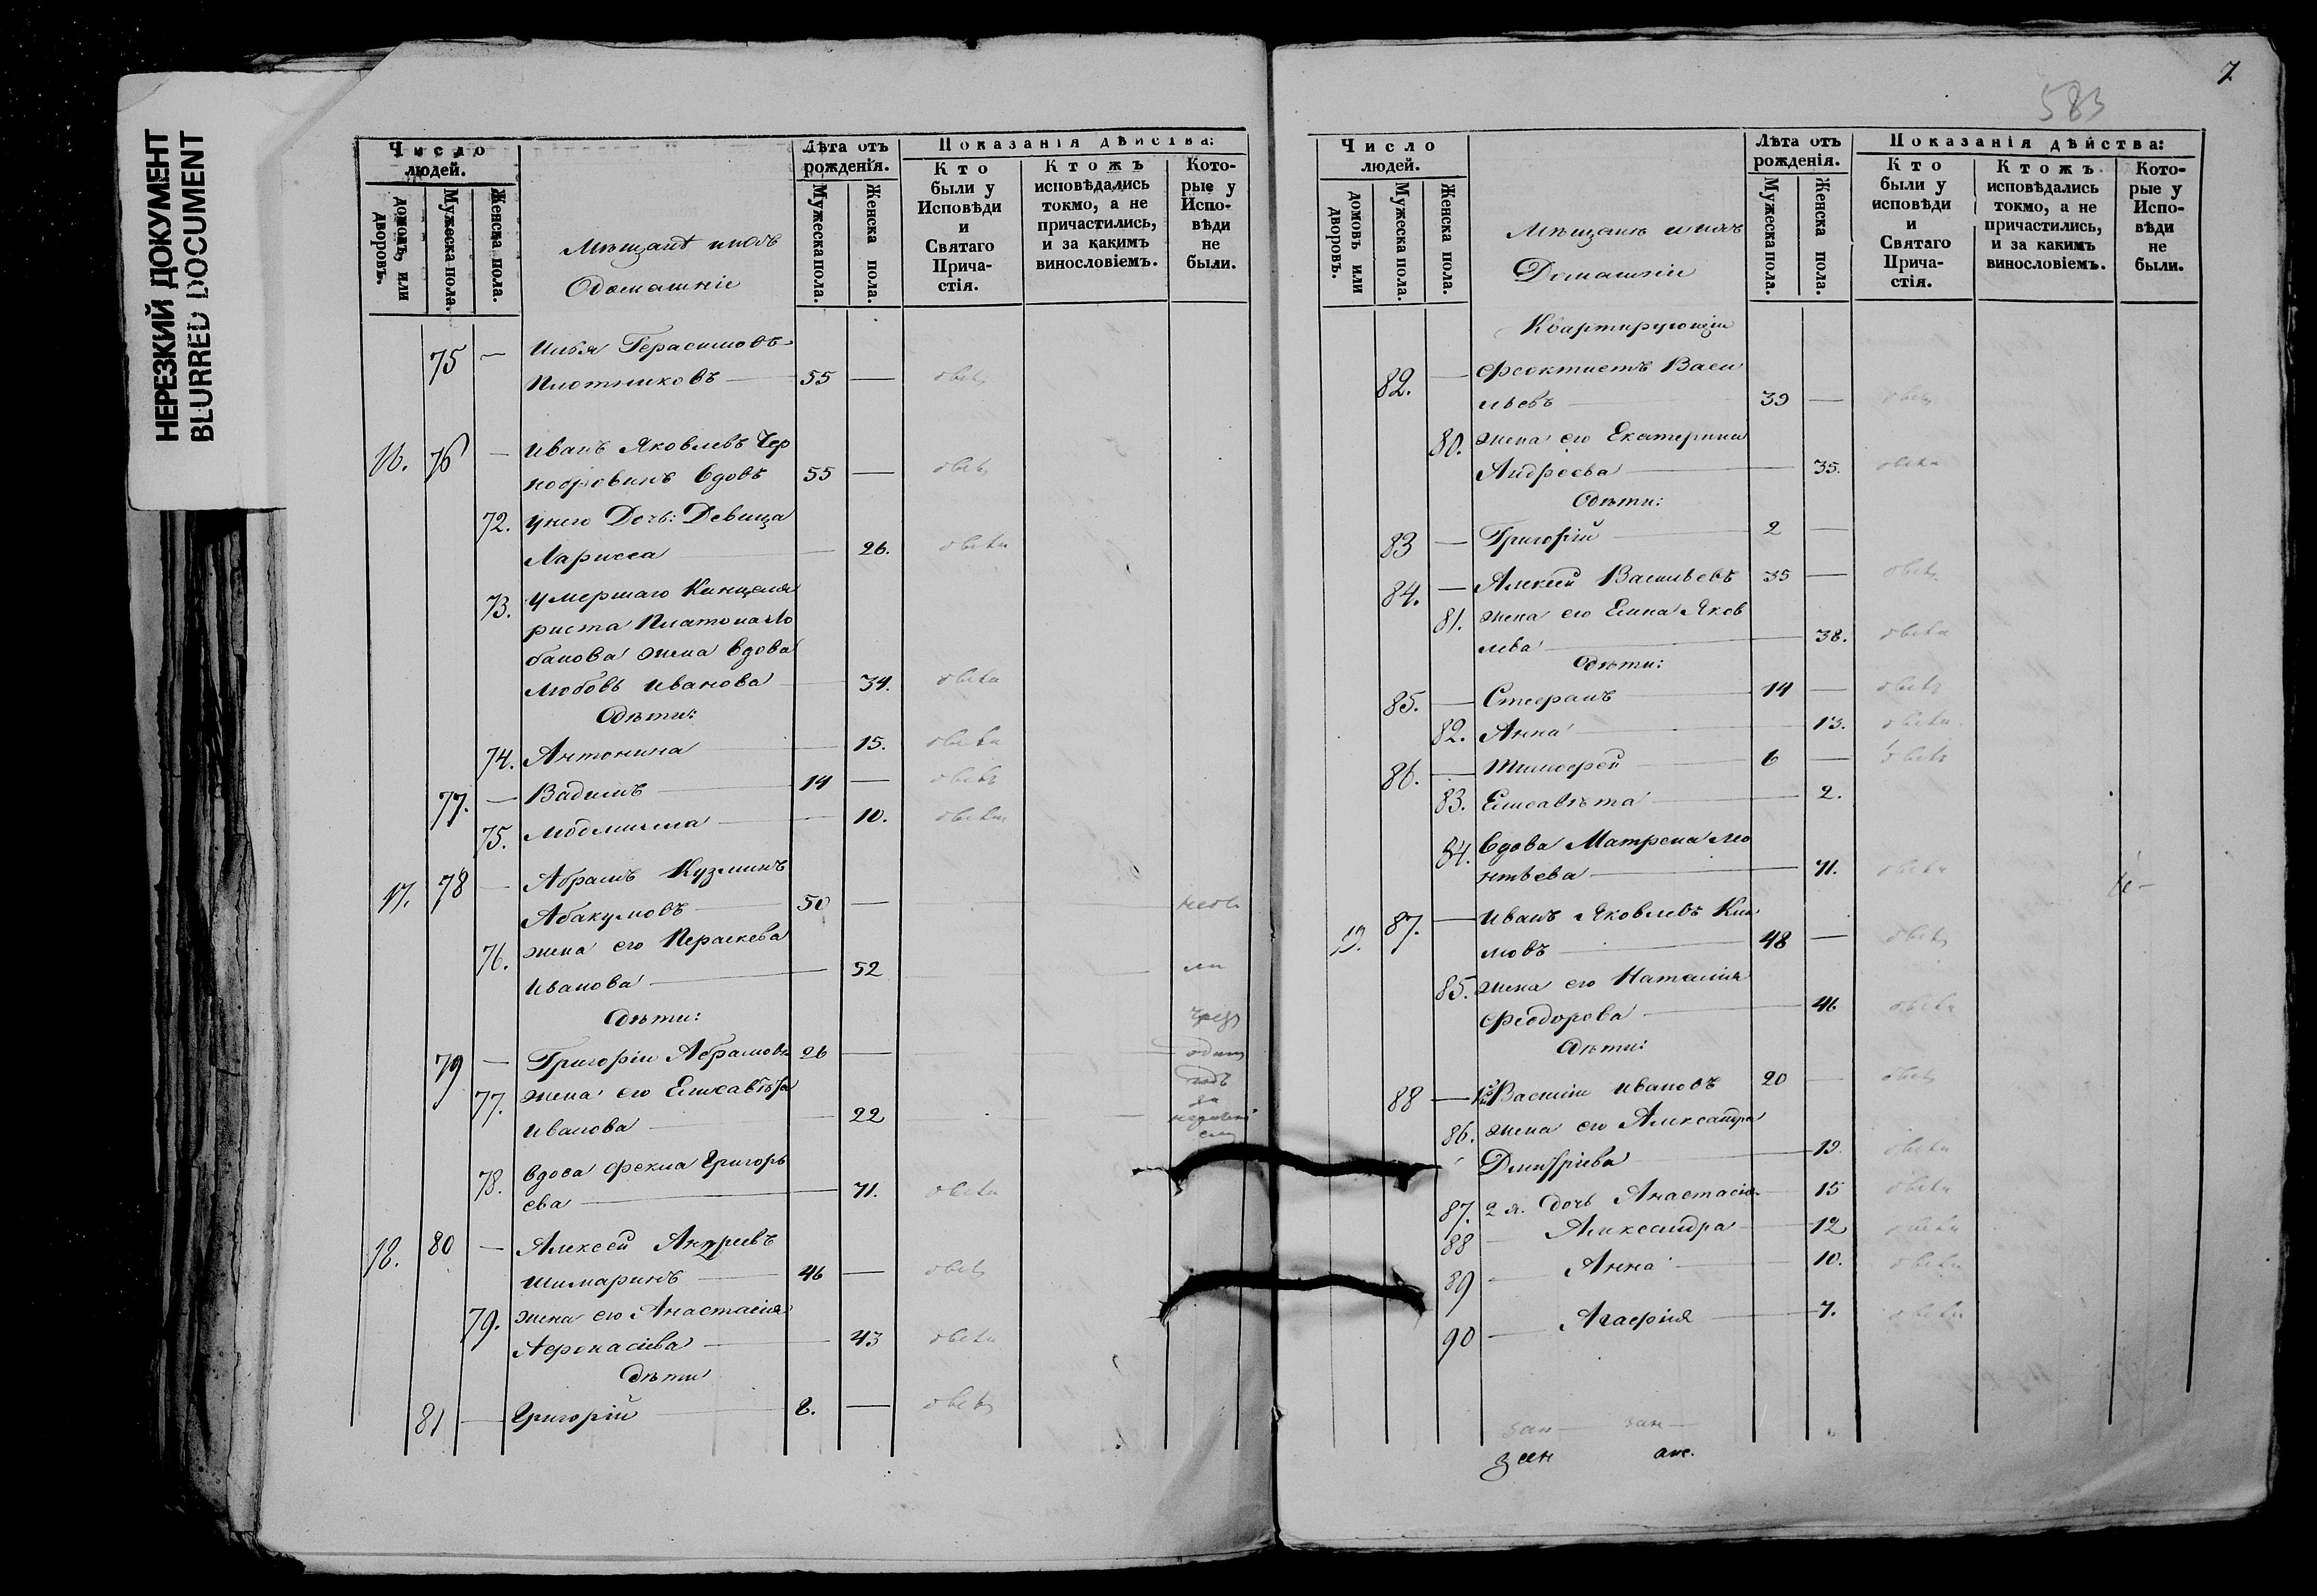 НЕРЕЗКИЙ ДОКУМЕНТ
BLURRED DOCUMENT
Число людей.
домовъ, или дворовъ.
Мужеска пола.
Женска пола.
Мѣщанѣ ихъ
Домашніе
Лѣта отъ рожденія.
Мужеска пола.
Женска пола.
Показанія дѣйства:
Кто были у Исповѣди и Святаго Прича-стія.
Ктожъ исповѣдались токмо, а не причастились, и за какимъ винословіемъ.
Кото-рые у Испо-вѣди не были.
75 — Илья Герасимовъ
Плотниковъ — 55 —
16. 76 — Иванъ Яковлевъ Чер
нобровинъ вдовъ 55 —
72. у него Дочь: Девица
Ларисса — 26.
73. умершаго Канцеля
риста Платона Ло
банова жена вдова
Любовь Иванова — 34.
Дѣти:
74. Антонина — 15.
77. — Вадимъ — 14 —
75. Людмилла — 10.
17. 78 — Абрамъ Кузминъ
Абакумовъ — 50 —
76. жена его Параскева
Иванова — 52
Дѣти:
79 — Григорій Абрамовъ 26 —
одинъ
годъ
77. жена его Елисавѣта
Иванова — 22
78. вдова Фекла Григорь
ева — 71.
18. 80 — Алексей Андреевъ
Шимаринъ — 46 —
79. жена его Анастасія
Афонасіева — 43
Дѣти
81 — Григорій — 8. —
7
583
Число людей.
домовъ или дворовъ.
Мужеска пола.
Женска пола.
Мѣщанѣ и ихъ
Домашніи
Лѣта отъ рожденія.
Мужеска пола.
Женска пола.
Показанія дѣйства:
Кто были у исповѣди и Святаго Прича-стія.
Ктожъ исповѣдались токмо, а не причастились, и за какимъ винословіемъ.
Кото-рые у Испо-вѣди не были.
Квартирующіи
82. — Феоктистъ Васи
льевъ — 39 —
80. жена его Екатерина
Андреева — 35.
Дѣти:
83 — Григорій — 2 —
84. — Алексей Васильевъ 35 —
81. жена его Елена Яков
лева — 38.
Дѣти:
85. — Стефанъ — 14 —
82. Анна — 13.
86. — Тимофей — 6 —
83. Елисавѣта — 2.
84. Вдова Матрена Лео
нтьева — 71.
19. 87. — Иванъ Яковлевъ Кли
мовъ — 48 —
85. жена его Наталія
Феодорова — 46
Дѣти:
88 — Василій Ивановъ 20 —
86. жена его Александра
Дмитріева — 19
87. 2я. дочь Анастасія — 15
88 — Александра — 12
89 — Анна — 10.
90 — Агафія — 7.